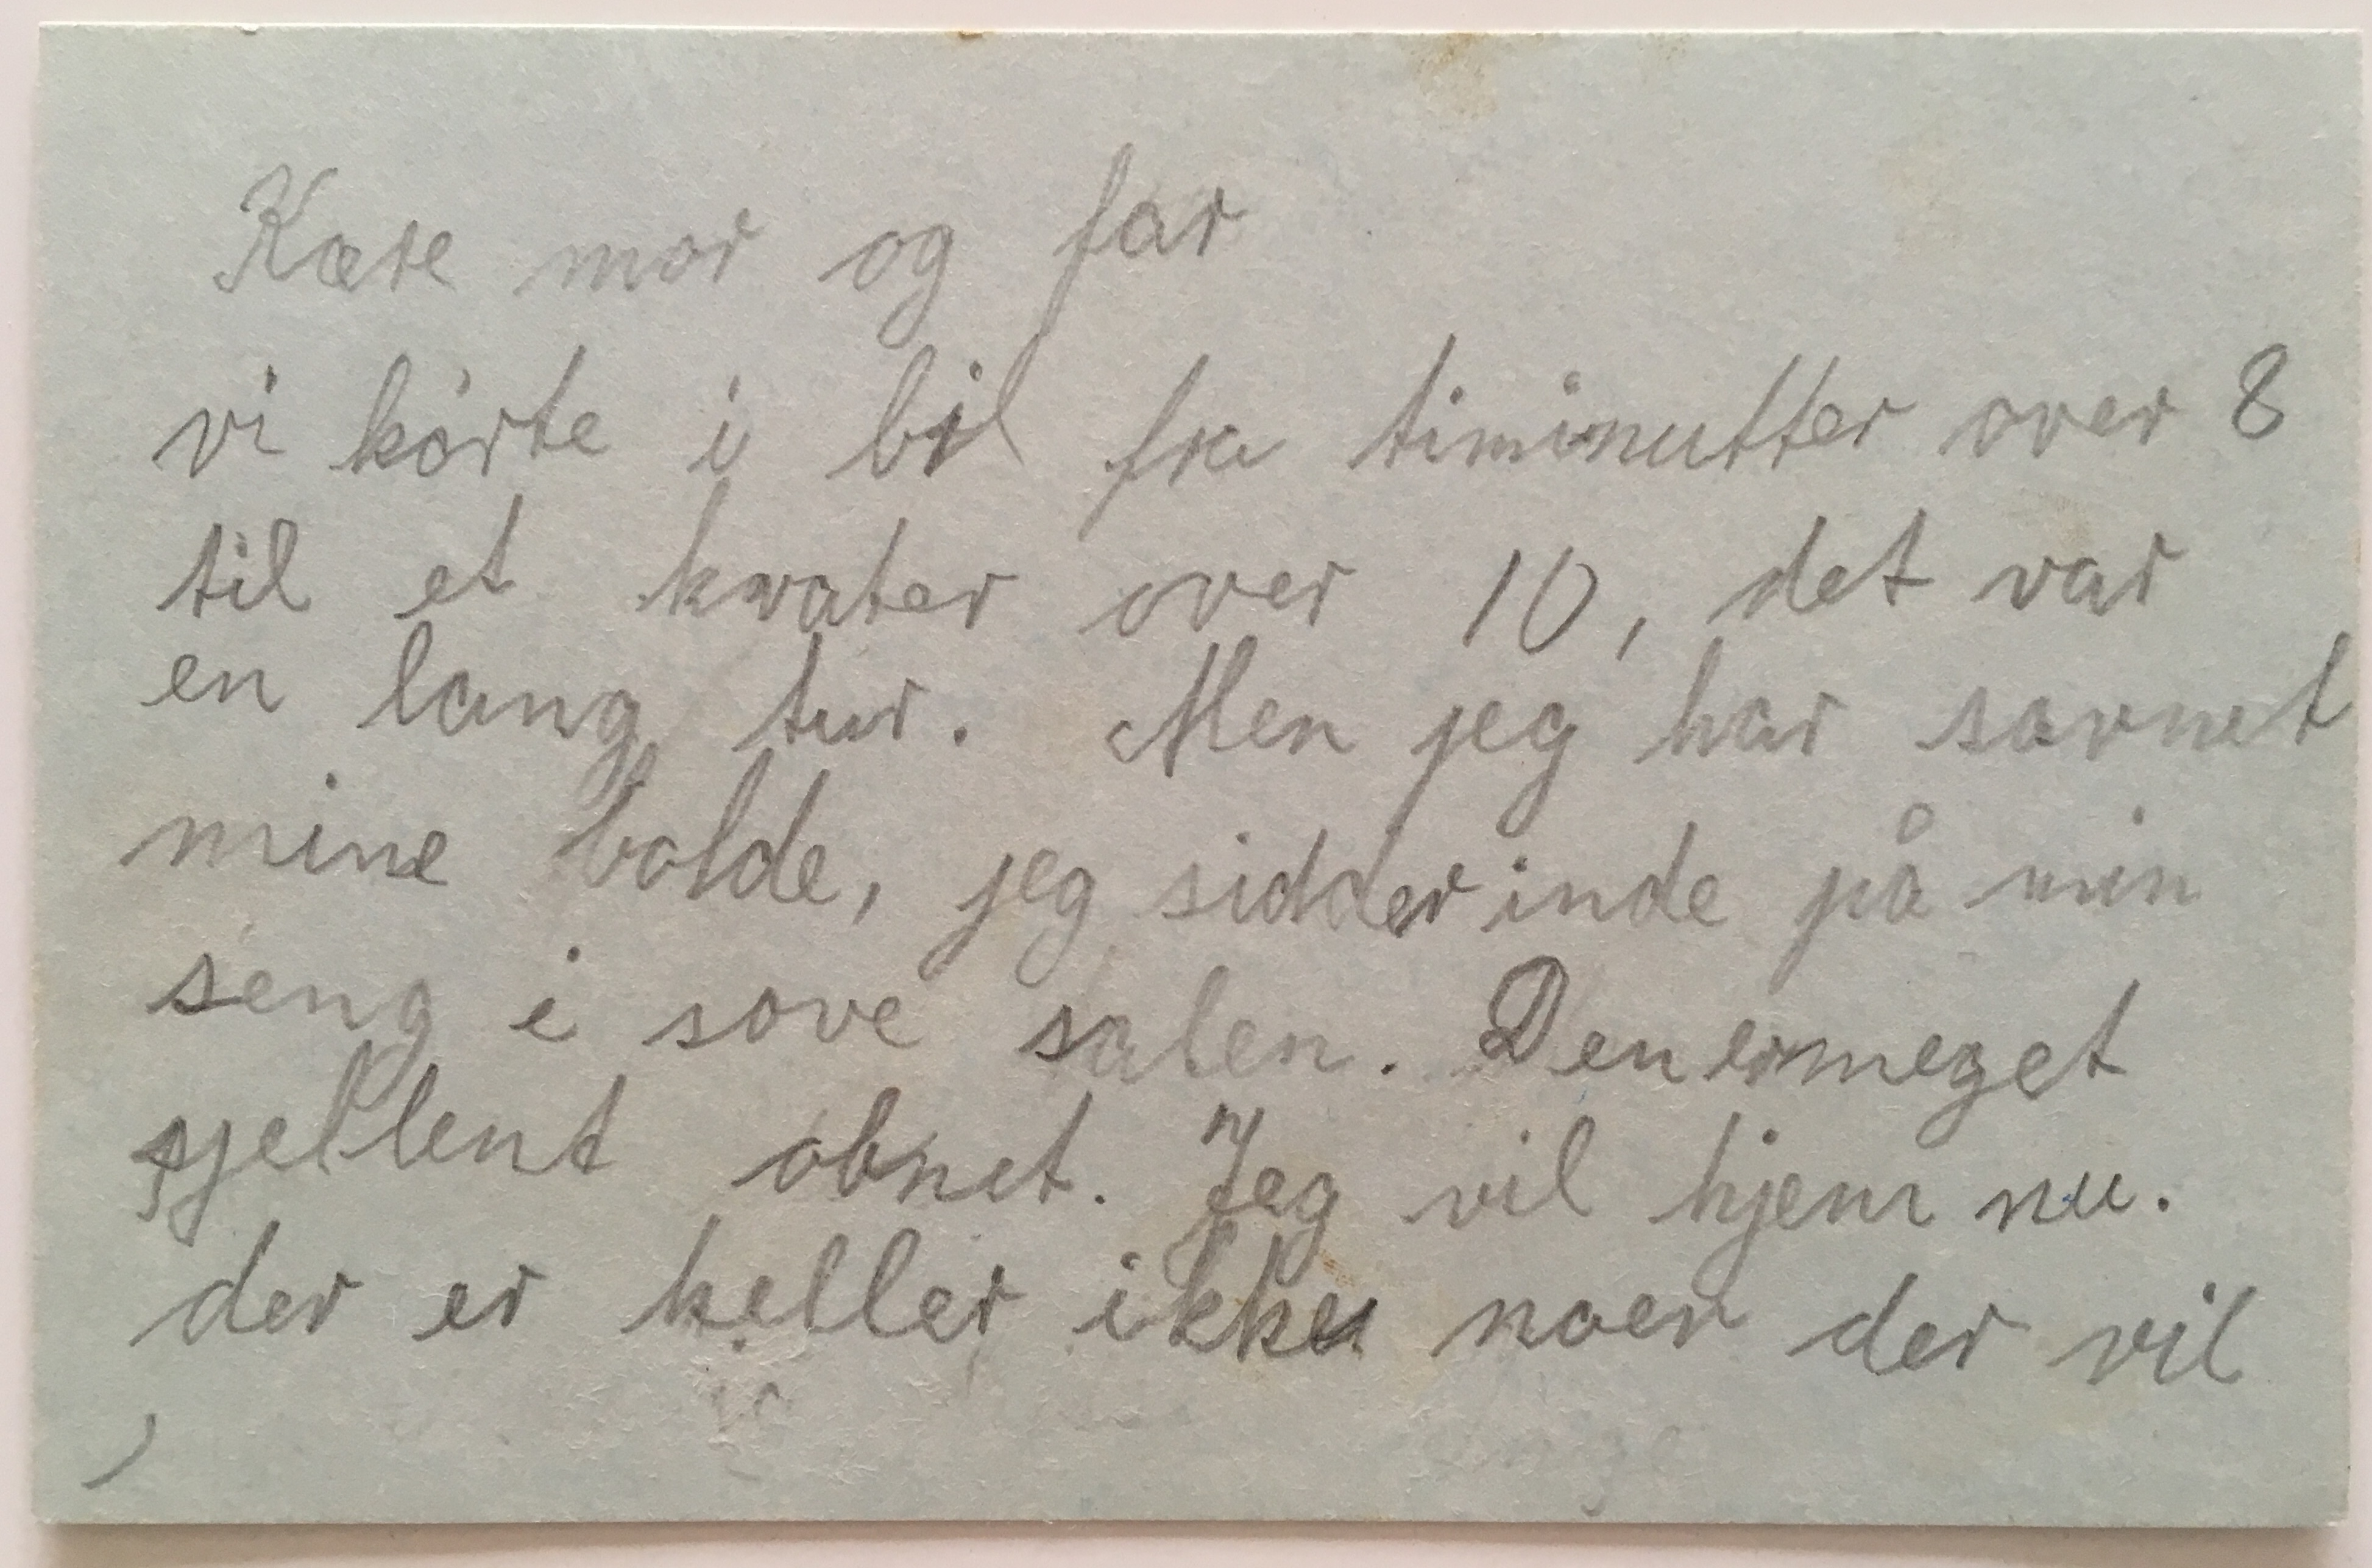 Kære mor og far
vi kórte i bil fra timinutter over 8
til et kvater over 10, det var
en lang tur. Men jeg har savnet
mine bolde, jeg sidder inde på min
seng i sove salen. Den er meget
sjellent obnet. Jeg vil hjem nu.
der er heller ikke noen der vil